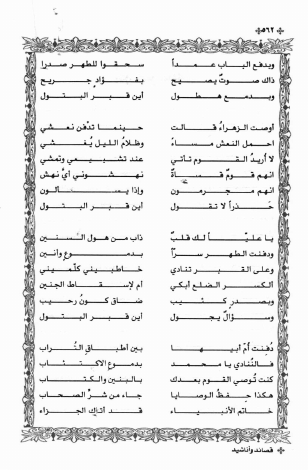 ❖ ٥٦٢ ❖
وبدفع الباب عمداً سحقوا للطهر صدرا
ذاك صوتٌ يصيح بفؤادٍ جريح
وبدمعٍ هطول أين قبر البتول
أوصت الزهراءُ قالت حينما تدفن نعشي
احمل النعش مساءً وظلامُ الليل يُغشي
لا أريدُ القوم تأتي عند تشييعي وتمشي
انهم قومٌ قساةٌ نهشوني أيَّ نهش
انهم مجرمون وإذا يسألون
حذراً لا تقول أين قبر البتول
يا عليّاً لك قلبٌ ذاب من هول السنين
ودفنت الطهر سراً بدموعٍ وأنين
وعلى القبر تنادي خاطبيني كلّميني
ألكسر الضلع أبكي أم لإسقاط الجنين
وبصدرٍ كئيب ضاق كونٌ رحيب
وسؤالٌ يجول أين قبر البتول
دُفنت أم أبيها بين أطباق التُراب
فالتُنادي يا محمد بدموع الاكتئاب
كنت تُوصي القوم بعدك بالبنين والكتاب
هكذا حِفظُ الوصايا جاء من شرِّ الصحاب
خاتم الأنبياء قد أتاك الجزاء
❖ قصائد وأناشيد